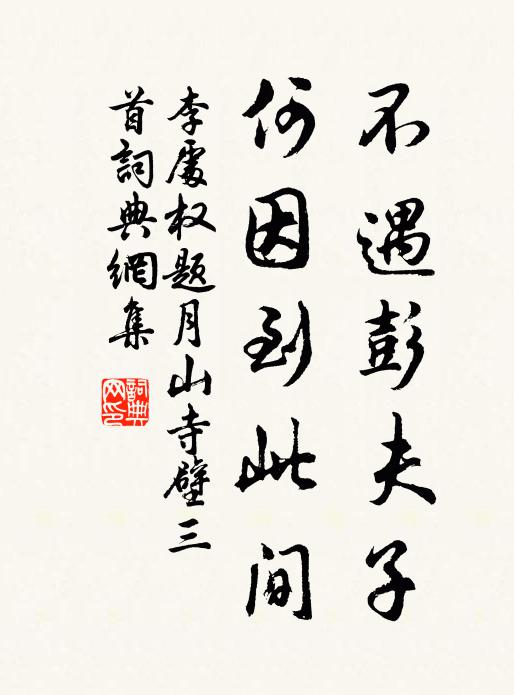 不遇彭夫子
何因到此间
李處权题月山寺壁三
首詞典網集
詞典
网印